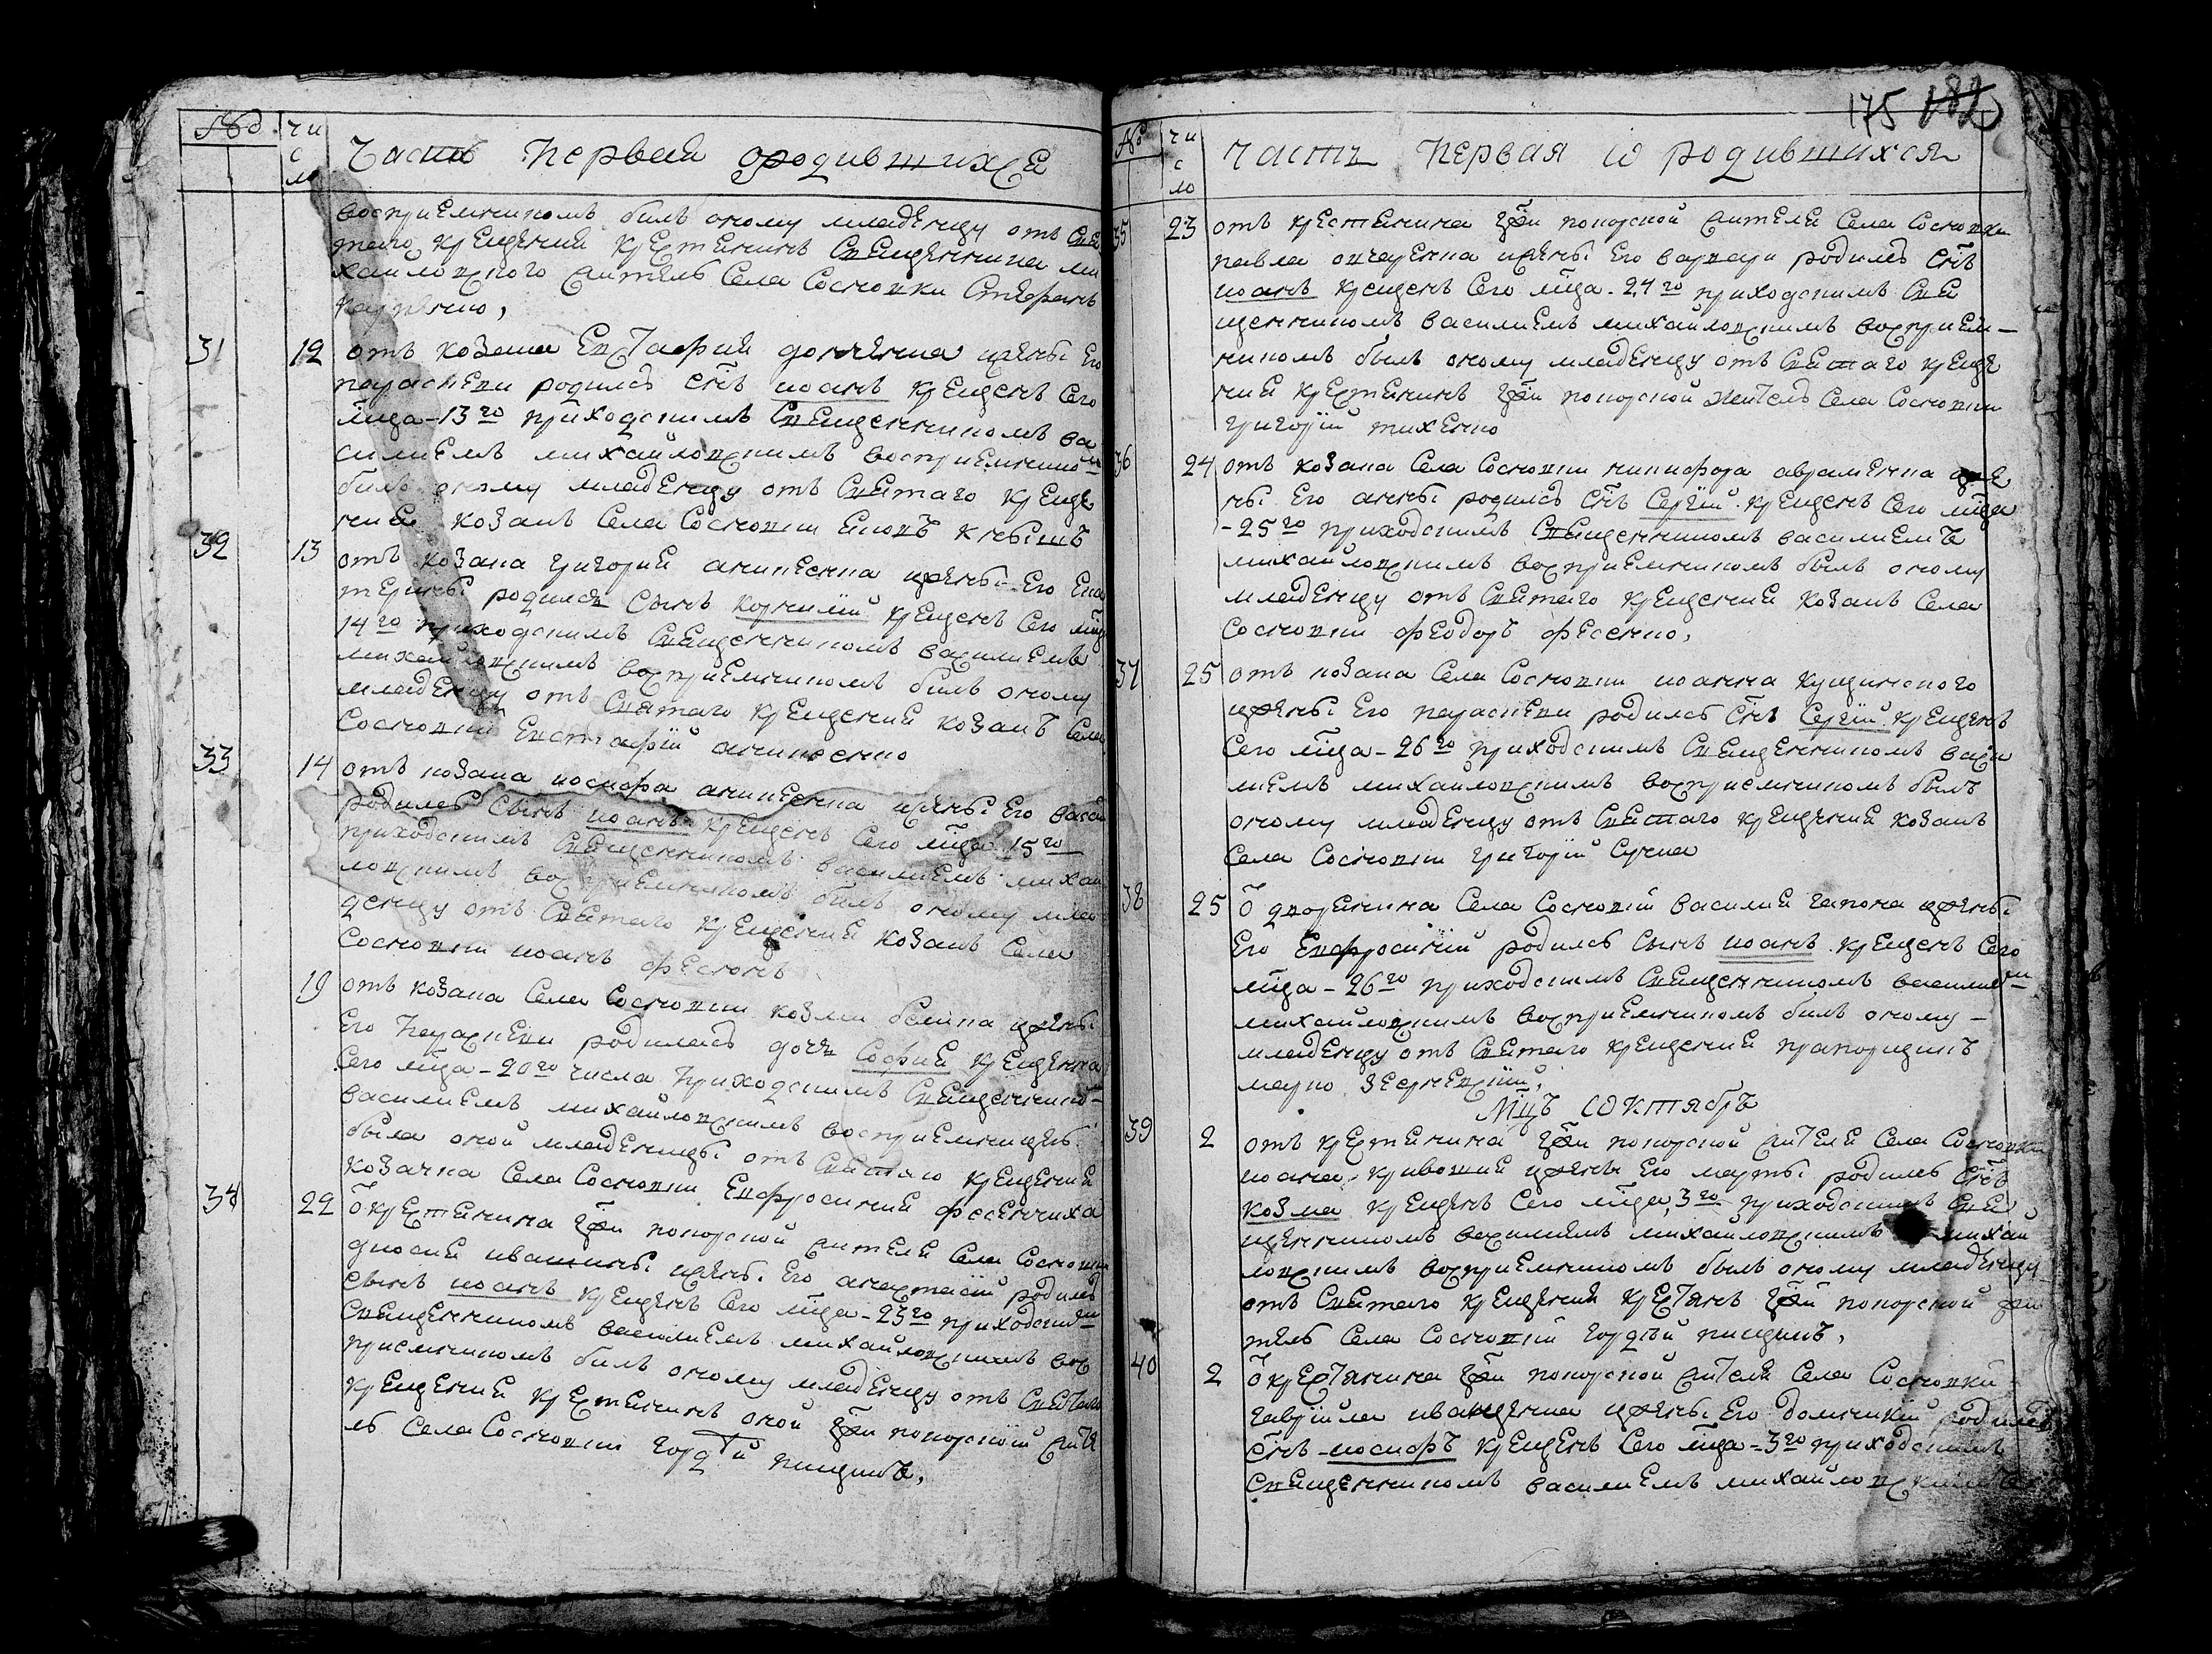 №
чи
с
ло
Часть Первая о родившихся
восприемникомъ билъ оному младенцу отъ Свя
таго крещения крестянинъ Священника ми
хайловского житель Села Сосновки Стефанъ
31 12 отъ козака Евстафия жены Его
параскеви родилса Снъ иоанъ крещенъ Сего
мца - 13го приходскимъ Священникомъ ва
силиемъ михайловскимъ восприемником
билъ оному младенцу отъ Святаго креще
ния козакъ Села Сосновки
32 13 отъ козака григория жены Его Ека
терины родился Сынъ корнилий крещенъ Сего мца
14го приходскимъ Священникомъ василиемъ
михайловскимъ восприемникомъ билъ оному
младенцу отъ Святаго крещения козакъ Села
Сосновки Евстафий
33 14 отъ козака иосифа жены Его
родилса Сынъ иоанъ крещенъ Сего мца 15го
приходскимъ Священникомъ василиемъ михай
ловскимъ восприемникомъ билъ оному мла
денцу отъ Святаго крещения козакъ Села
Сосновки иоанъ фесюнъ
19 отъ козака Села Сосновки козми жены
Его Параскеви родилась дочь София крещенна
Сего мца - 20го числа Приходскимъ Священнико
василиемъ михайловскимъ восприемницею
была оной младеницы отъ Святаго крещения
козачка Села Сосновки Евфросиния фесенчиха
34 22 о крестянина жителя Села Сосновки
жены Его анастасии родилса
Сынъ иоанъ крещенъ Сего мца - 23го приходским
Священникомъ василиемъ михайловскимъ вос
приемникомъ билъ оному младенцу отъ Святаго
крещения крестянинъ оной жите
ль Села Сосновки гордий пищикъ,
175 182
№
чи
с
ло
Часть Первая ѡ родившихся
35 23 отъ крестянина жителя Села Сосновки
павла жены Его варвари родилса Снъ
иоанъ крещенъ Сего мца - 24го приходскимъ Свя
щенникомъ василиемъ михайловскимъ восприем-
никомъ былъ оному младенцу отъ Святаго креще
ния крестянинъ житель Села Сосновки
григорий тихенко
36 24 отъ козака Села Сосновки никифора авраменка же
ны Его анны родилса Снъ Сергий крещенъ Сего мца
- 25го приходскимъ Священникомъ василиемъ
михайловскимъ восприемникомъ былъ оному
младенцу отъ Святаго крещения козакъ Села
Сосновки феодоръ фесенко,
37 25 отъ козака Села Сосновки иоанна кущинского
жены Его параскеви родилса Снъ Сергий крещенъ
Сего мца - 26го приходскимъ Священникомъ васи
лиемъ михайловскимъ восприемникомъ былъ
оному младенцу отъ Святаго крещения козакъ
Села Сосновки григорий
38 25 о дворянина Села Сосновки василия гапона жены
Его Евфросинии родилса Сынъ иоанъ крещенъ Сего
мца - 26го приходскимъ Священникомъ василием
михайловскимъ восприемникомъ билъ оному -
младенцу отъ Святаго крещения прапорщикъ
марко
Мцъ ѡктябръ
39 2 отъ крестянина жителя Села Сосновки
иоана кривошия жены Его марты родилса Снъ
козма крещенъ Сего мца 3го приходскимъ Свя
щенникомъ василиемъ михайловскимъ михай
ловскимъ восприемникомъ былъ оному младенцу
отъ Святаго крещения крестянъ жи
тель Села Сосновки гордий пищикъ,
40 2 о крестянина жителя Села Сосновки
гавриила иващенка жены Его домникии родился
Снъ иосифъ крещенъ Сего мца - 3го приходскимъ
Священникомъ василиемъ михайловскимъ